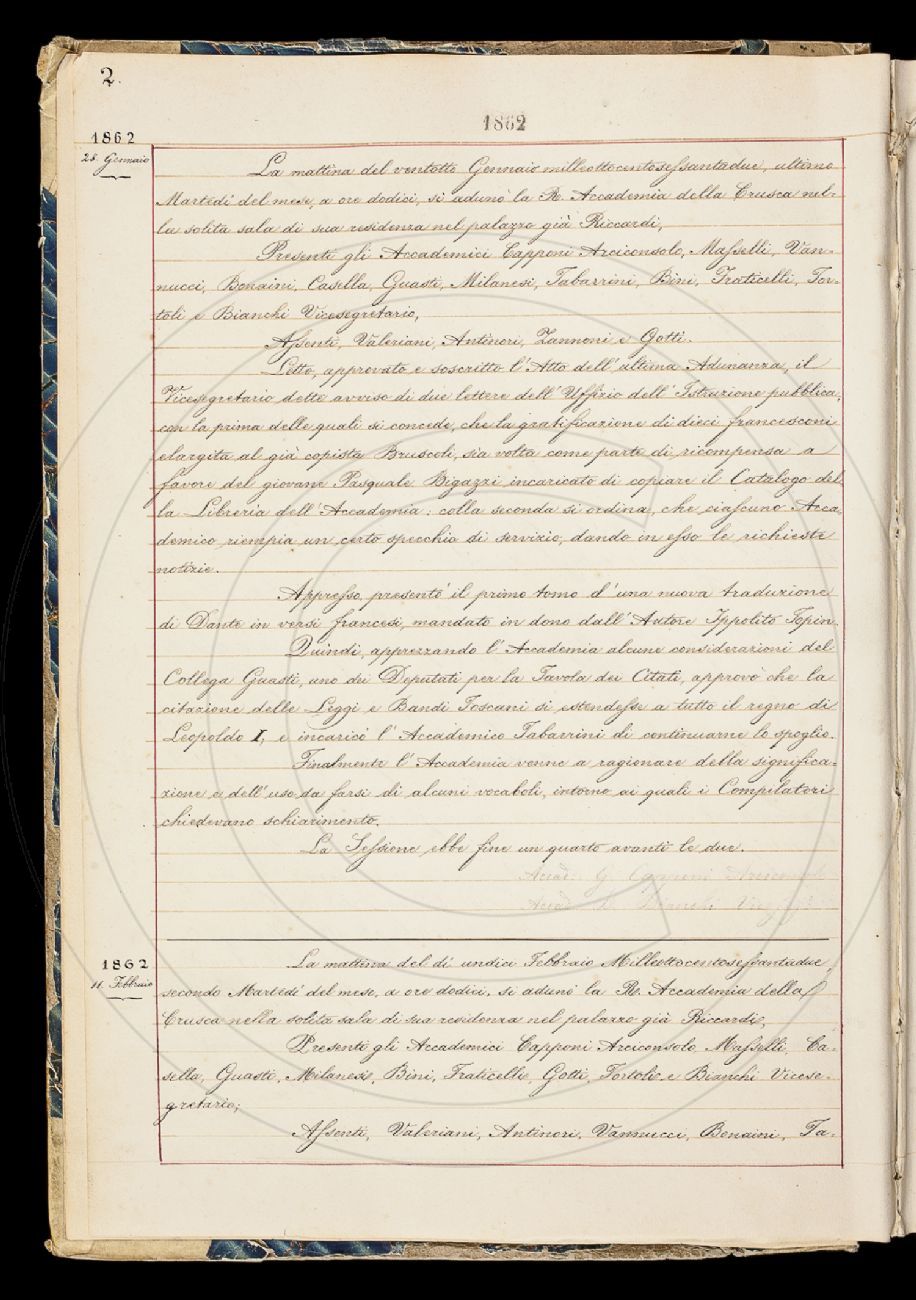 2.
1862
1862
28 Gennaio
La mattina del ventotto Gennaio milleottocentosessantadue, ultimo
Martedí del mese, a ore dodici, si adunò la R. Accademia della Crusca nel-
la solita sala di sua residenza nel palazzo già Riccardi,
Presenti gli Accademici Capponi Arciconsolo, Masselli, Van-
nucci, Bonaini, Casella, Guasti, Milanesi, Tabarrini, Bini, Fraticelli, Tor-
toli e Bianchi Vicesegretario,
Assenti, Valeriani, Antinori, Zannoni e Gotti.
Letto, approvato e soscritto l'Atto dell'ultima Adunanza, il
Vicesegretario dette avviso di due lettere dell'Uffizio dell'Istruzione pubblica,
con la prima delle quali si concede, che la gratificazione di dieci francesconi
elargita al già copista Bruscoli, sia volta come parte di ricompensa a
favore del giovane Pasquale Bigazzi incaricato di copiare il Catalogo del
la Libreria dell'Accademia: colla seconda si ordina, che ciascuno Acca
demico riempia un certo specchio di servizio, dando in esso le richieste
notizie.
Appresso, presentò il primo tomo d'una nuova traduzione
di Dante in versi francesi, mandato in dono dall'Autore Ippolito Topin.
Quindi, apprezzando l'Accademia alcune considerazioni del
Collega Guasti, uno dei Deputati per la Tavola dei Citati, approvò che la
citazione delle Leggi e Bandi Toscani si estendesse a tutto il regno di
Leopoldo I, e incaricò l'Accademico Tabarrini di continuarne lo spoglio.
Finalmente l'Accademia venne a ragionare della significa-
zione e dell'uso da farsi di alcuni vocaboli, intorno ai quali i Compilatori
chiedevano schiarimento.
La Sessione ebbe fine un quarto avanti le due.
Accad. G. Capponi Arciconsolo
Accad. Bianchi
1862
11. Febbraio
La mattina del dí undici Febbraio Milleottocentosessantadue,
secondo Martedí del mese, a ore dodici, si adunò la R. Accademia della
Crusca nella solita sala di sua residenza nel palazzo già Riccardi,
Presenti gli Accademici Capponi Arciconsolo, Masselli, Ca-
sella, Guasti, Milanesi, Bini, Fraticelli, Gotti, Tortoli e Bianchi Vicese-
gretario;
Assenti, Valeriani, Antinori, Vannucci, Bonaini, Ta-